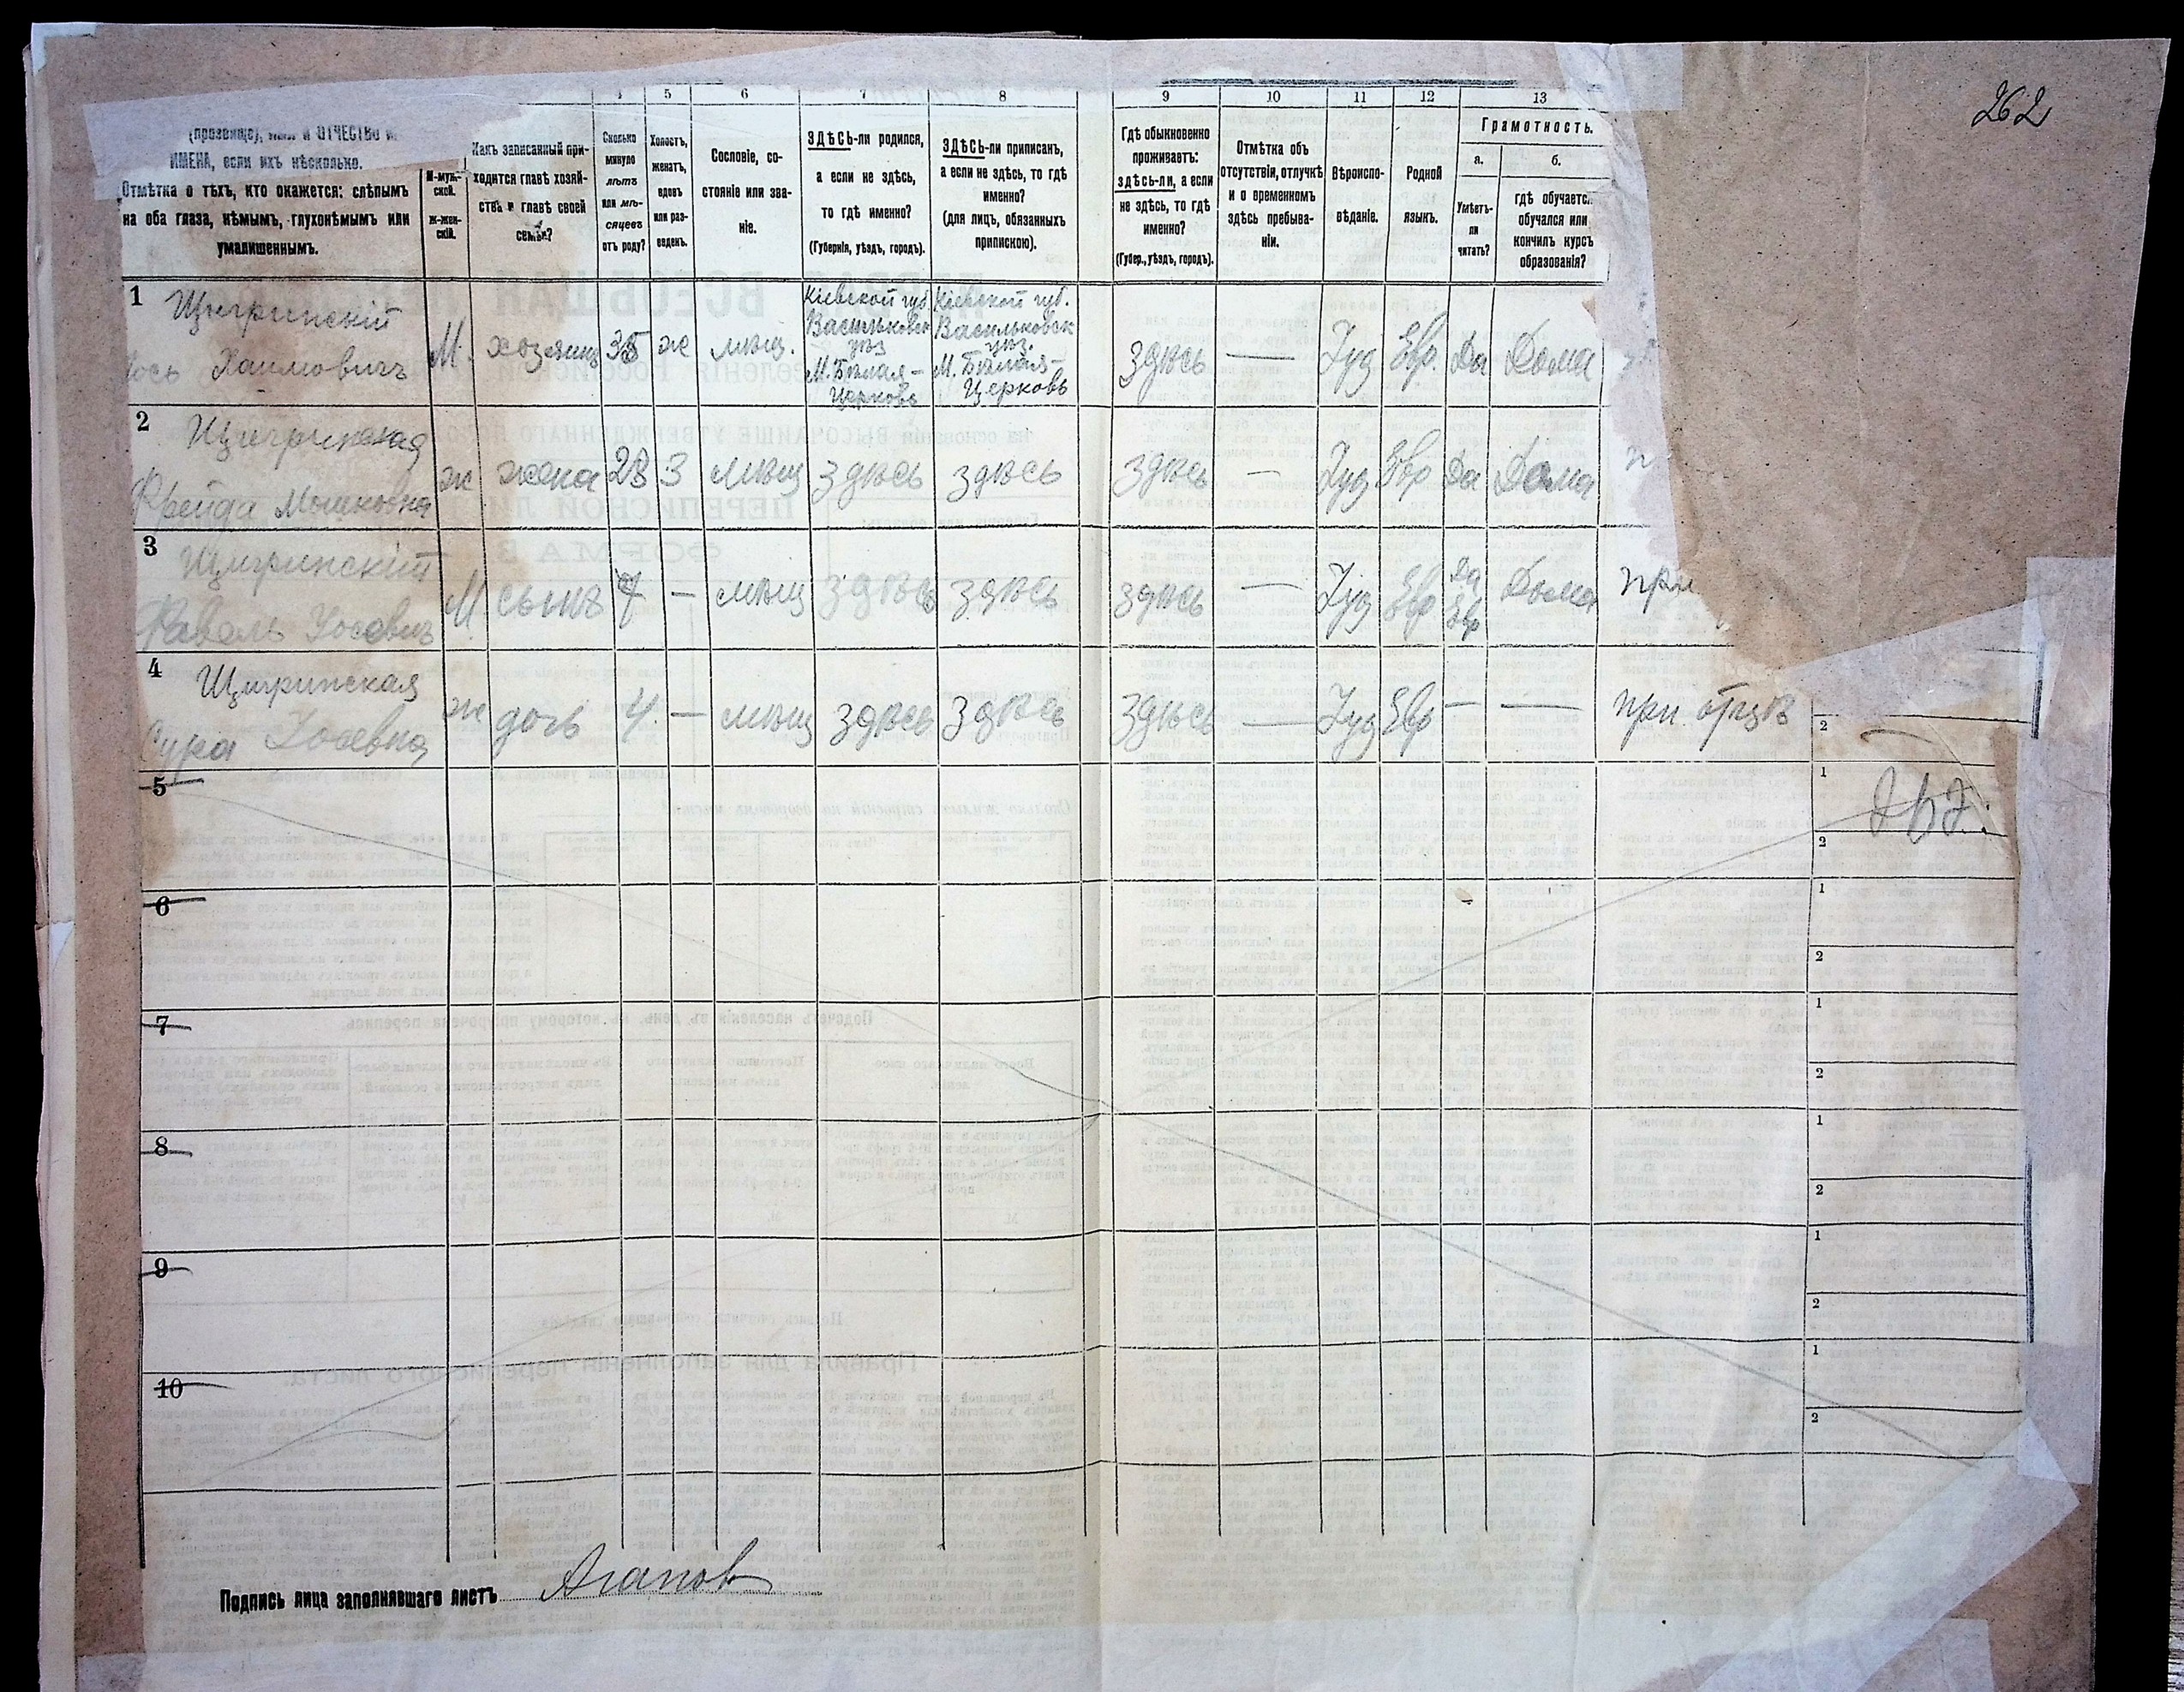 262
4 5 6 7 8 9 10 11 12 13
ИМЕНА, если ихъ нѣсколько.
Отмѣтка о тѣхъ, кто окажется: слѣпымъ
на оба глаза, нѣмымъ, глухонѣмымъ или
умалишеннымъ.
М-муж-
ской.
Ж-жен-
скій.
Какъ записанный при-
ходится главѣ хозяй-
ства и главѣ своей
семьи?
Сколько
минуло
лѣтъ
или мѣ-
сяцевъ
отъ роду?
Холостъ,
женатъ,
вдовъ
или раз-
веденъ.
Сословіе, со-
стояніе или зва-
ніе.
ЗДѢСЬ-ли родился,
а если не здѣсь,
то гдѣ именно?
(Губернія, уѣздъ, городъ).
ЗДѢСЬ-ли приписанъ,
а если не здѣсь, то гдѣ
именно?
(для лицъ, обязанныхъ
припискою).
Гдѣ обыкновенно
проживаетъ:
здѣсь-ли, а если
не здѣсь, то гдѣ
именно?
(Губер., уѣздъ, городъ).
Отмѣтка объ
отсутствіи, отлучкѣ
и о временномъ
здѣсь пребыва-
ніи.
Вѣроиспо-
вѣданіе.
Родной
языкъ.
Грамотность.
а.
б.
Умѣетъ-
ли
читать?
гдѣ обучаетс
обучался или
кончилъ курсъ
образованія?
1
Щигринскій
Хаимовичъ
М. хозяинъ 35 ж мѣщ.
Кіевской губ.
Васильковск
уѣз
М. Бѣлая-
Церковь
Кіевской губ.
Васильковск
уѣз.
М. Бѣлая-
Церковь
здѣсь — Іуд Евр. Да Дома
2
Щигринская
Фрейда Мошковна
ж жена 28 З мѣщ здѣсь здѣсь здѣсь — Іуд Евр Да Дома
3
Щигринскій
Іосевич
М. сынъ — мѣщ здѣсь здѣсь здѣсь — Іуд Евр Да Евр Дома при
4
Щигринская
Сура Іосевна
ж дочь 4. — мѣщ здѣсь здѣсь здѣсь — Іуд Евр — — при отцѣ
2
5 1
2
6 1
2
7 1
2
8 1
2
9 1
2
10 1
2
Подпись лица заполнявшаго листъ Агапов